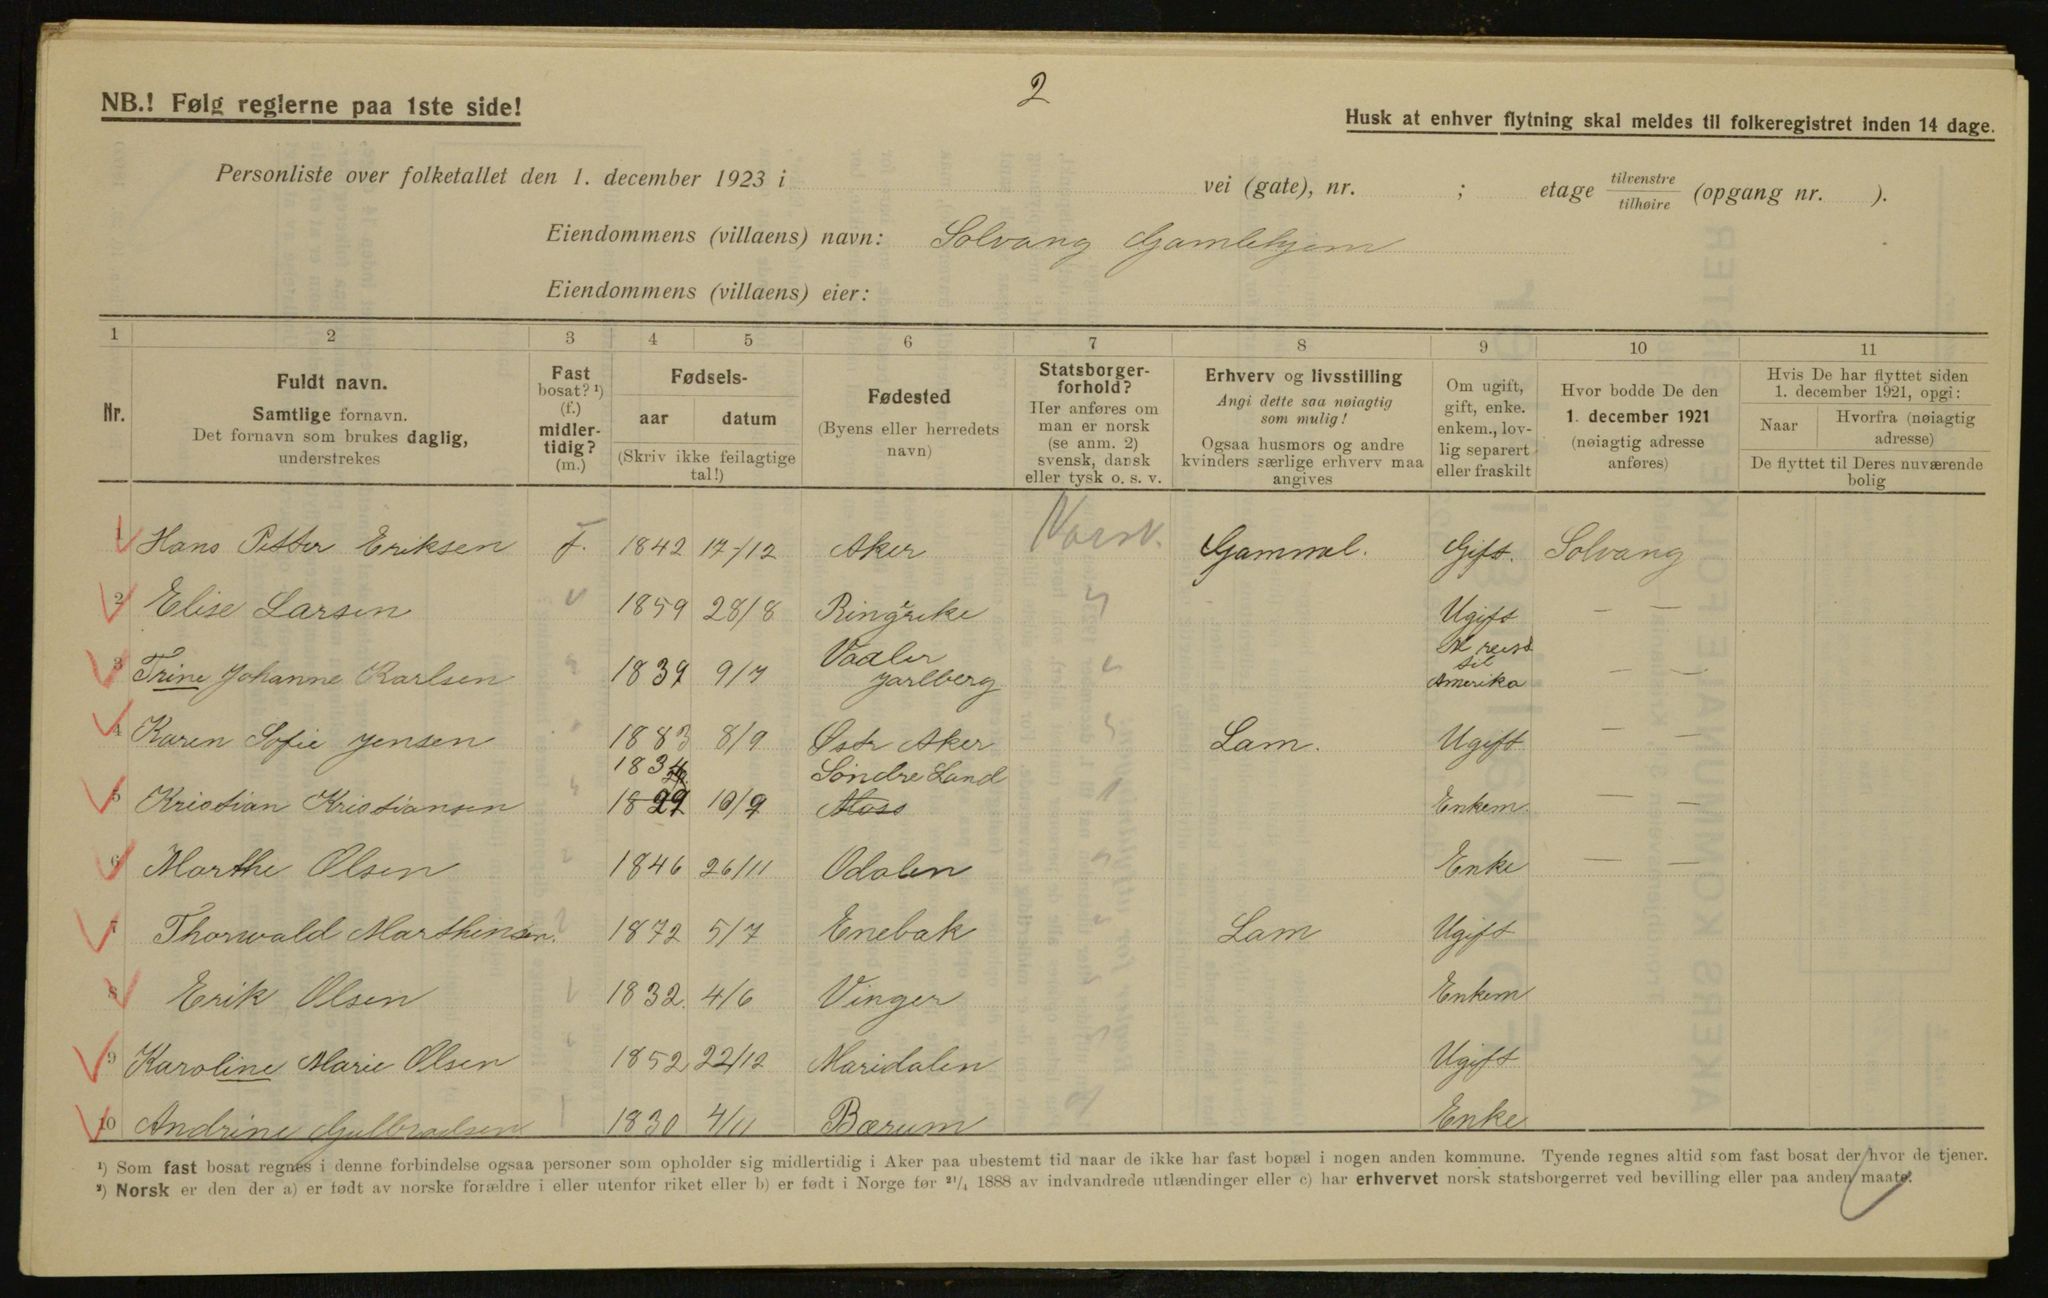 2
NB.! Følg reglerne paa 1ste side!
Husk at enhver flytning skal meldes til folkeregistret inden 14 dage.
Personliste over folketallet den 1. december 1923 i vei (gate), nr. ; etage tilvenstre tilhøire (opgang nr. ).
Eiendommens (villaens) navn: Solvang Gamlehjem
Eiendommens (villaens) eier:
1 2 3 4 5 6 7 8 9 10 11
Nr.
Fuldt navn.
Samtlige fornavn.
Det fornavn som brukes daglig,
understrekes
Fast
bosat? ¹)
(f.)
midler-
tidig?
(m.)
Fødsels-
aar datum
(Skriv ikke feilagtige
tal!)
Fødested
(Byens eller herredets
navn)
Statsborger-
forhold?
Her anføres om
man er norsk
(se anm. 2)
svensk, dansk
eller tysk o. s. v.
Erhverv og livsstilling
Angi dette saa nøiagtig
som mulig!
Ogsaa husmors og andre
kvinders særlige erhverv maa
angives
Om ugift,
gift, enke.
enkem., lov-
lig separert
eller fraskilt
Hvor bodde De den
1. december 1921
(nøiagtig adresse
anføres)
Hvis De har flyttet siden
1. december 1921, opgi:
Naar Hvorfra (nøiagtig
adresse)
De flyttet til Deres nuværende
bolig
1 Hans Petter Eriksen f. 1842 17/12 Aker Norsk. Gammel. Gift. Solvang
2 Elise Larsen " 1859 28/8 Ringerike " Ugift — —
3 Trine Johanne Karlsen " 1839 9/7 Vaaler Jarlberg " M reist til Amerika — —
4 Karen Sofie Jensen " 1883 8/9 Østr Aker " Lam. Ugift — —
1834 Søndre Land
5 Kristian Kristiansen " 1829 10/9 Moss " Enkem. — —
6 Marthe Olsen " 1846 26/11 Odalen " Enke — —
7 Thorwald Marthinsen. " 1872 5/7 Enebak " Lam Ugift
8 Erik Olsen " 1832. 4/6 Vinger " Enkem
9 Karoline Marie Olsen " 1852 22/12 Maridalen " Ugift
10 Andrine Gulbradsen " 1830 4/11 Bærum " Enke
¹) Som fast bosat regnes i denne forbindelse ogsaa personer som opholder sig midlertidig i Aker paa ubestemt tid naar de ikke har fast bopæl i nogen anden kommune. Tyende regnes altid som fast bosat der hvor de tjener.
²) Norsk er den der a) er født av norske forældre i eller utenfor riket eller b) er født i Norge før ²¹/₄ 1888 av indvandrede utlændinger eller c) har erhvervet norsk statsborgerret ved bevilling eller paa anden maate.